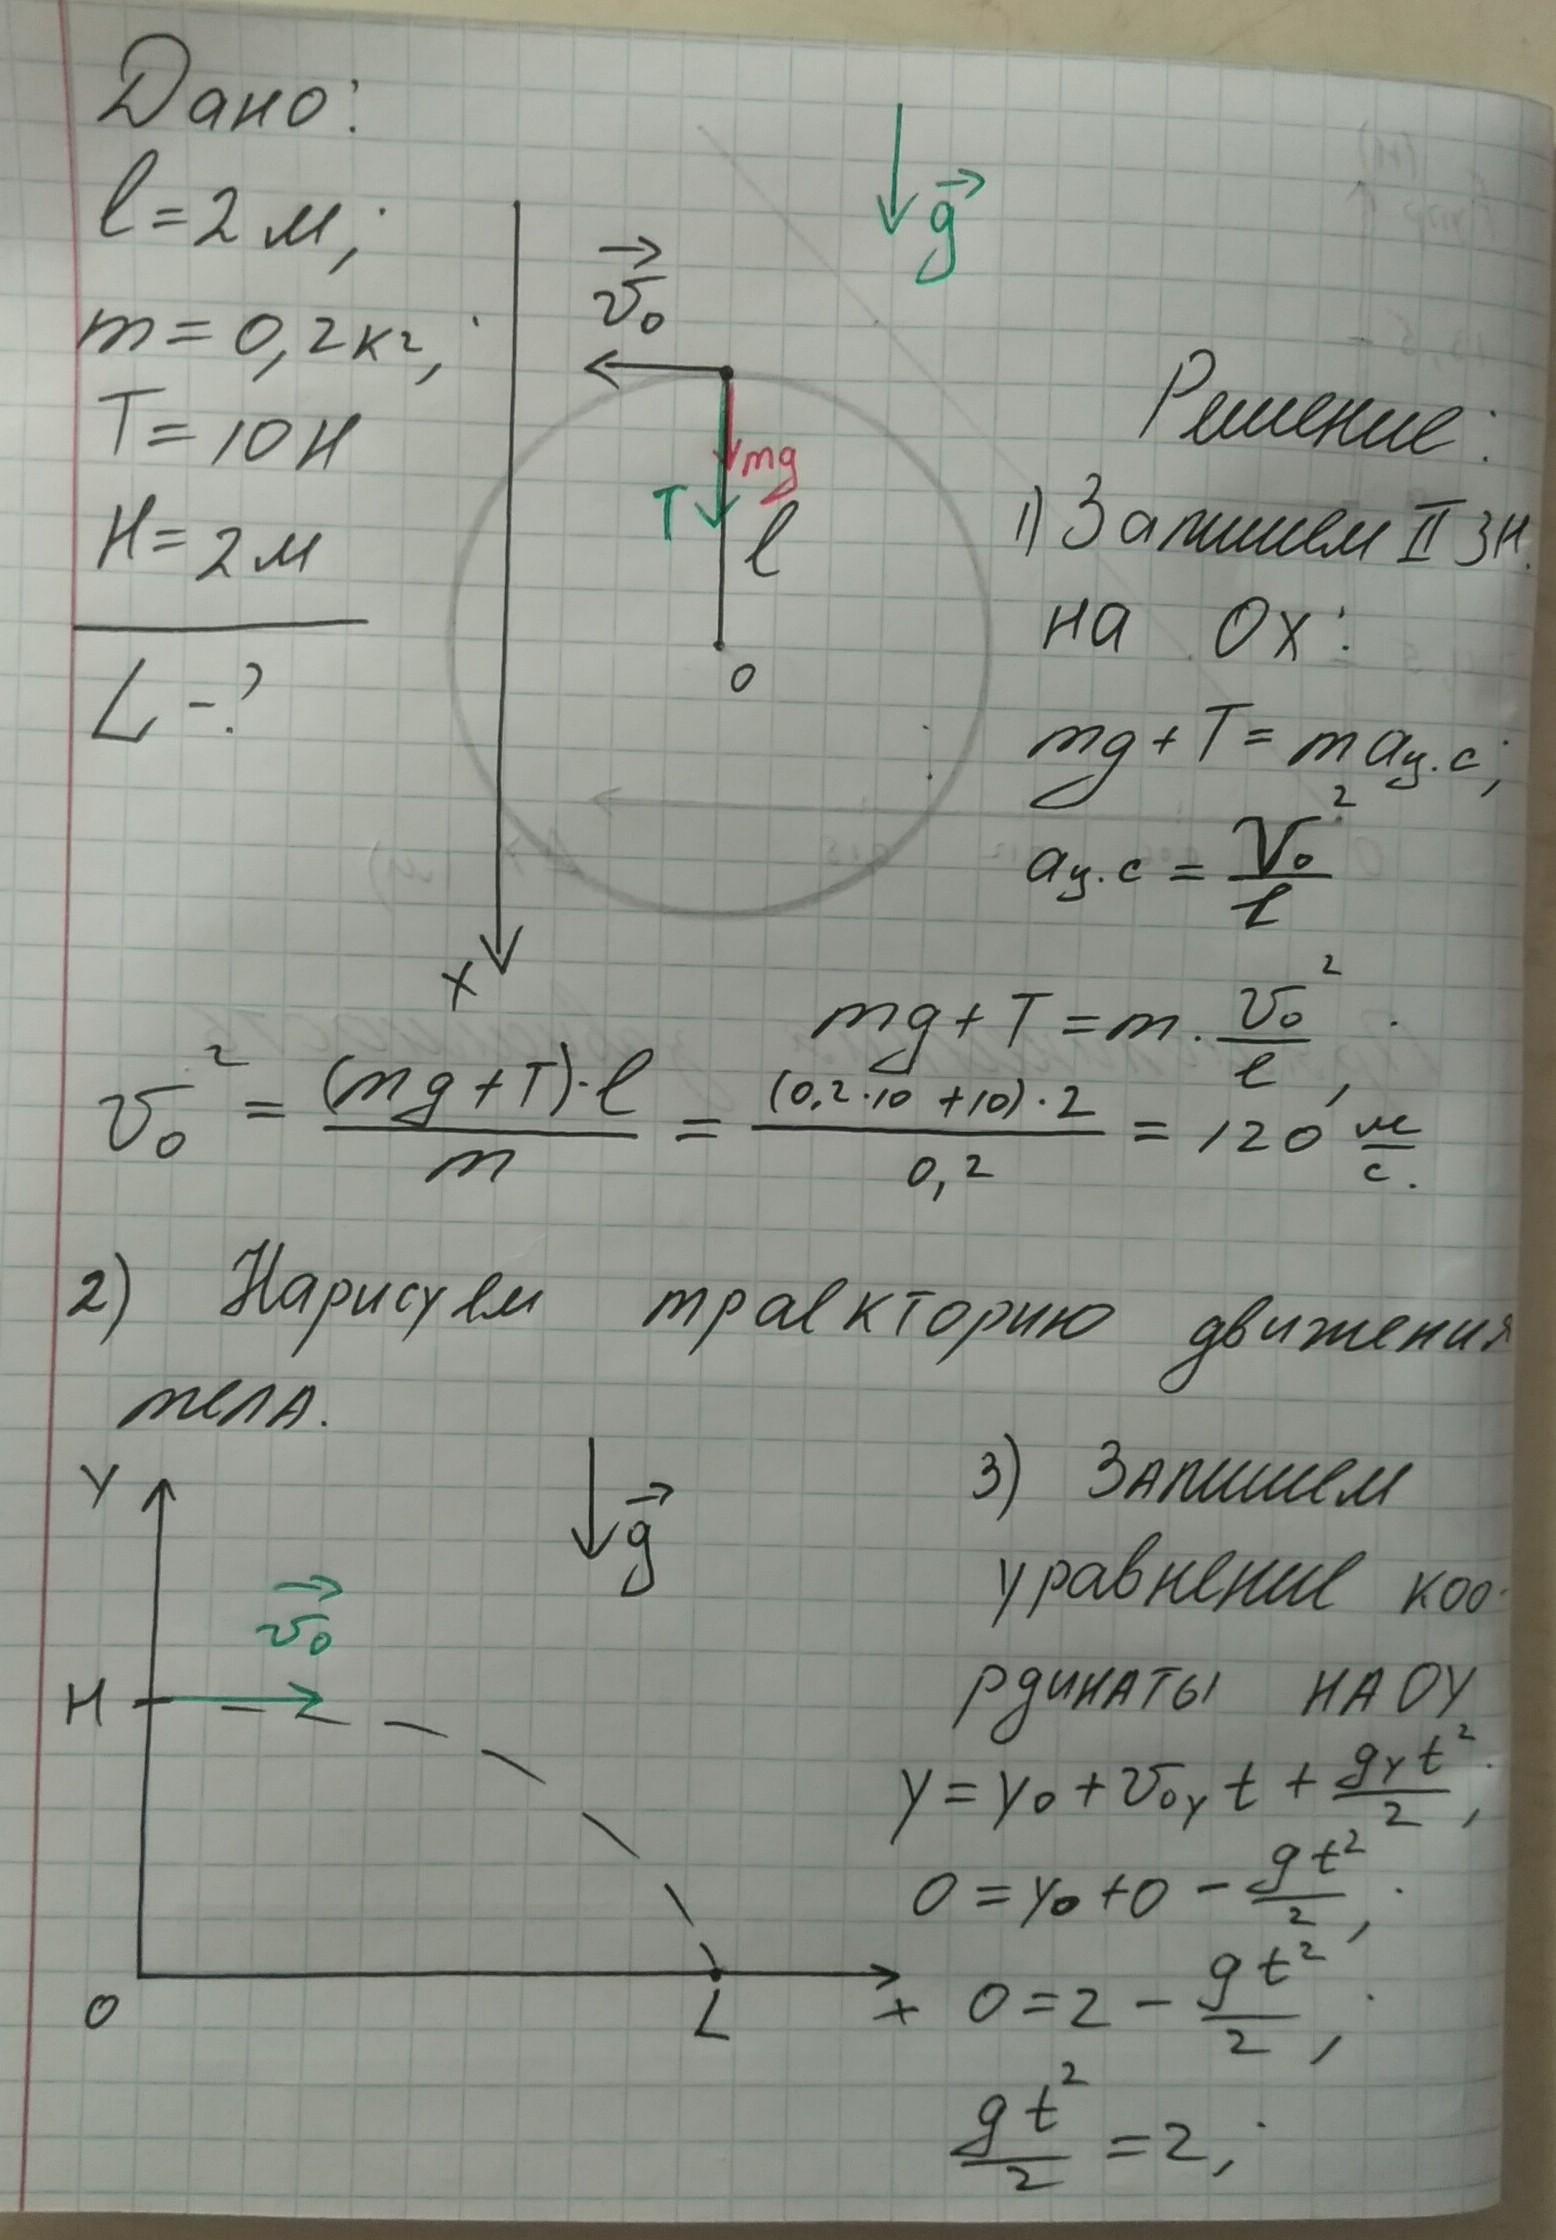 Дано:
l = 2 м;
m = 0,2 кг;
T = 10 Н
H = 2 м
L - ?
g
v₀
mg
T
l
O
X
Решение:
1) Запишем II ЗН.
на OX:
mg + T = m aц.с;
aц.с = V₀²/l
mg + T = m · v₀²/l;
v₀² = (mg + T)·l / m = (0,2·10 + 10)·2 / 0,2 = 120 м/с.
2) Нарисуем траекторию движения
тела.
Y
g
v₀
H
O
L
x
3) Запишем
уравнение коо-
рдинаты на OY
y = y₀ + v₀y t + gy t²/2;
0 = y₀ + 0 - gt²/2;
0 = 2 - gt²/2;
gt²/2 = 2;